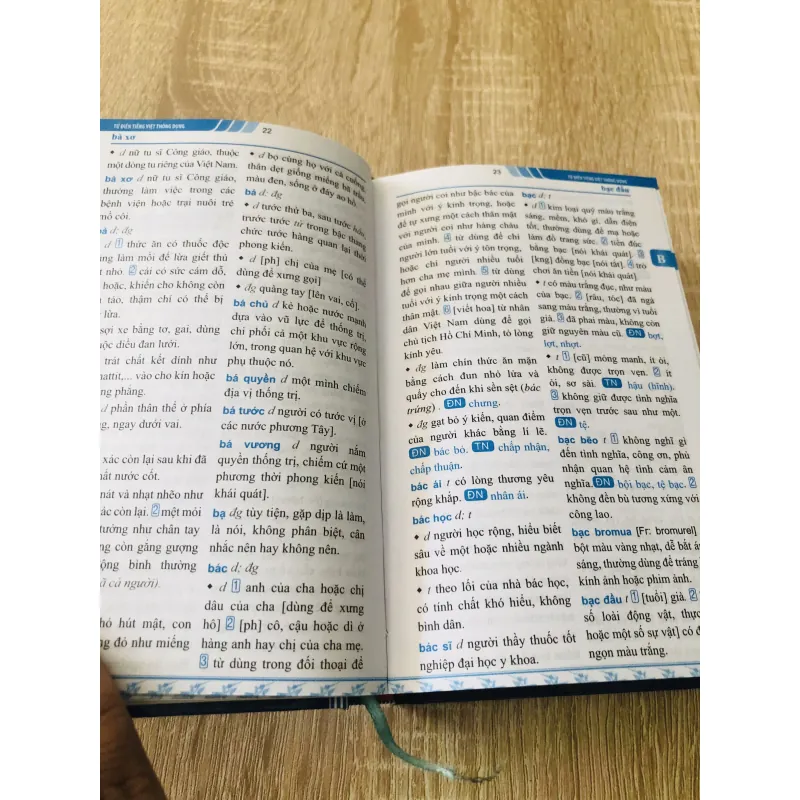 TỪ ĐIỂN TIẾNG VIỆT THÔNG DỤNG
22
bà xơ
• d nữ tu sĩ Công giáo, thuộc
một dòng tu riêng của Việt Nam.
bà xơ d nữ tu sĩ Công giáo,
thường làm việc trong các
bệnh viện hoặc trại nuôi trẻ
mồ côi.
bả d: đg
d 1 thức ăn có thuốc độc
dùng làm mồi để lừa giết thú
vật nhỏ. 2 cái có sức cám dỗ,
hoặc, khiến cho không còn
táo, thậm chí có thể bị
lừa.
sợi xe bằng tơ, gai, dùng
buộc diều đan lưới.
trát chất kết dính như
mattit,... vào cho kín hoặc
phẳng.
d phần thân thể ở phía
ngay dưới vai.
xác còn lại sau khi đã
hất nước cốt.
nát và nhạt nhẽo như
xác còn lại. 2 mệt mỏi
tưởng như chân tay
còn gắng gượng
động bình thường
cả người).
hó hút mật, con
đó như miếng
• d bọ cùng họ với cà cuống,
thân dẹt giống miếng bã trầu,
màu đen, sống ở đáy ao hồ
bá d: đg
• d tước thứ ba, sau tước hầu,
trước tước tử trong bậc thang
chức tước hàng quan lại thời
phong kiến.
• d [ph] chị của mẹ [có thể
dùng để xưng gọi]
• đg quàng tay [lên vai, cổ].
bá chủ d kẻ hoặc nước mạnh
dựa vào vũ lực để thống trị,
chi phối cả một khu vực rộng
lớn, trong quan hệ với khu vực
phụ thuộc nó.
bá quyền d một mình chiếm
địa vị thống trị.
bá tước d người có tước vị [ở
các nước phương Tây].
bá vương d người nắm
quyền thống trị, chiếm cứ một
phương thời phong kiến [nói
khái quát].
bạ đg tùy tiện, gặp dịp là làm,
là nói, không phân biệt, cân
nhắc nên hay không nên.
bác d: đg
• d 1 anh của cha hoặc chị
dâu của cha [dùng để xưng
hô] 2 [ph] cô, cậu hoặc dì ở
hàng anh hay chị của cha mẹ.
3 từ dùng trong đối thoại để
23
TỪ ĐIỂN TIẾNG VIỆT THÔNG DỤNG
bạc đầu
gọi người coi như bậc bác của
mình với ý kính trọng, hoặc
để tự xưng một cách thân mật
với người coi như hàng cháu
của mình. 4 từ dùng để chỉ
người lớn tuổi với ý tôn trọng,
hoặc chỉ người nhiều tuổi
hơn cha mẹ mình. 5 từ dùng
để gọi nhau giữa người nhiều
tuổi với ý kính trọng một cách
thân mật. 6 [viết hoa] từ nhân
dân Việt Nam dùng để gọi
chủ tịch Hồ Chí Minh, tỏ lòng
kính yêu.
• đg làm chín thức ăn mặn
bằng cách đun nhỏ lửa và
quấy cho đến khi sền sệt (bác
trứng). ĐN chưng.
• đg gạt bỏ ý kiến, quan điểm
của người khác bằng lí lẽ.
ĐN bác bỏ. TN chấp nhận,
chấp thuận.
bác ái t có lòng thương yêu
rộng khắp. ĐN nhân ái.
bác học d; t
• d người học rộng, hiểu biết
sâu về một hoặc nhiều ngành
khoa học.
• t theo lối của nhà bác học,
có tính chất khó hiểu, không
bình dân.
bác sĩ d người thầy thuốc tốt
nghiệp đại học y khoa.
bạc d; t
• d 1 kim loại quý màu trắng
sáng, mềm, khó gỉ, dẫn điện
tốt, thường dùng để mạ hoặc
làm đồ trang sức. 2 tiền đúc
bằng bạc [nói khái quát]. 3
[kng] đồng bạc [nói tắt]. 4 trò
chơi ăn tiền [nói khái quát].
• t có màu trắng đục, như màu
của bạc. 2 [râu, tóc] đã ngả
sang màu trắng, thường vì tuổi
già. 3 đã phai màu, không còn
giữ nguyên màu cũ. ĐN bợt,
lợt, nhợt.
• t 1 [cũ] mỏng manh, ít ỏi,
không được trọn vẹn. 2 ít
ỏi, sơ sài. TN hậu (hĩnh).
3 không giữ được tình nghĩa
trọn vẹn trước sau như một.
ĐN tệ.
bạc bẽo t 1 không nghĩ gì
đến tình nghĩa, công ơn, phũ
phàng quan hệ tình cảm ân
nghĩa. ĐN bội bạc, tệ bạc. 2
không đền bù tương xứng với
công lao.
bạc bromua [Fr: bromurel]
bột màu vàng nhạt, dễ bắt ánh
sáng, thường dùng để tráng
kính ảnh hoặc phim ảnh.
bạc đầu t 1 [tuổi] già. 2
số loài động vật, thực
hoặc một số sự vật] có đ
ngọn màu trắng.
B